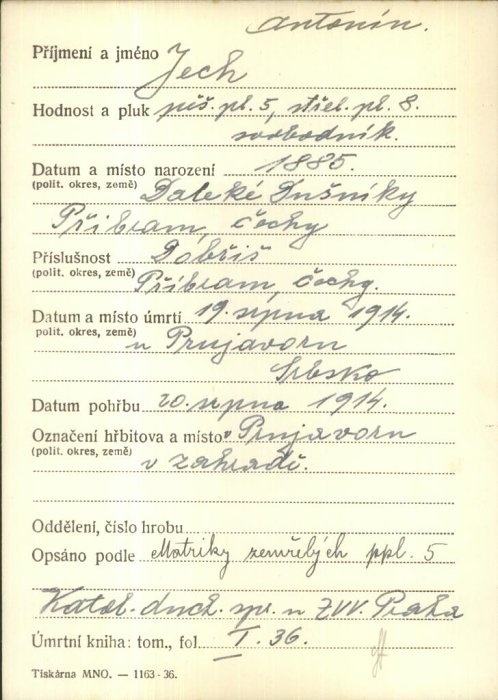 Antonín.
Příjmení a jméno Jech
Hodnost a pluk pěš. pl. 5, střel. pl. 8.
svobodník.
Datum a místo narození 1885.
(polit. okres, země) Daleké Dušníky
Příbram, Čechy
Příslušnost Dobříš
(polit. okres, země) Příbram, Čechy.
Datum a místo úmrtí 19. srpna 1914.
polit. okres, země)
u Prnjavoru
Srbsko
Datum pohřbu 20. srpna 1914.
Označení hřbitova a místo v Prnjavoru
(polit. okres, země) v zahradě.
Oddělení, číslo hrobu
Opsáno podle Matriky zemřelých ppl. 5
Katol. duch. spr. u ZVV. Praha
Úmrtní kniha: tom., fol. I. 36.
Tiskárna MNO. — 1163-36.